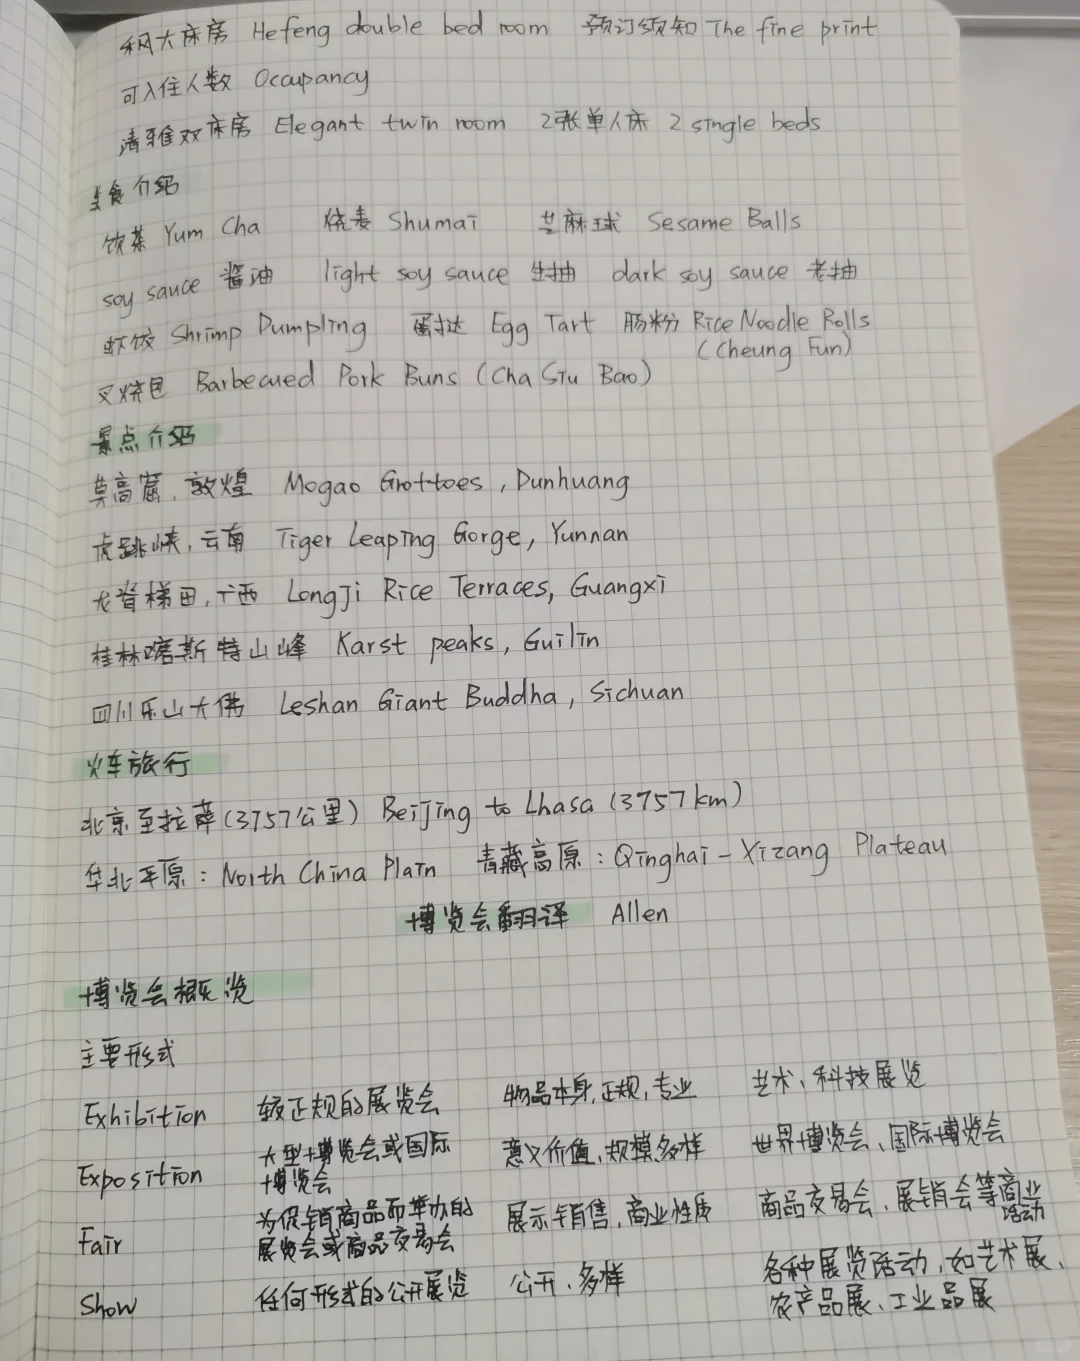 和风大床房 Hefeng double bed room 预订须知 The fine print
可入住人数 Occupancy
清雅双床房 Elegant twin room 2张单人床 2 single beds
食介绍
饮茶 Yum Cha 烧麦 Shumai 芝麻球 Sesame Balls
soy sauce 酱油 light soy sauce 生抽 dark soy sauce 老抽
虾饺 Shrimp Dumpling 蛋挞 Egg Tart 肠粉 Rice Noodle Rolls
(Cheung Fun)
叉烧包 Barbecued Pork Buns (Cha Siu Bao)
景点介绍
莫高窟,敦煌 Mogao Grottoes, Dunhuang
虎跳峡,云南 Tiger Leaping Gorge, Yunnan
龙脊梯田,广西 Longji Rice Terraces, Guangxi
桂林喀斯特山峰 Karst peaks, Guilin
四川乐山大佛 Leshan Giant Buddha, Sichuan
火车旅行
北京至拉萨(3757公里) Beijing to Lhasa (3757km)
华北平原: North China Plain 青藏高原: Qinghai-Xizang Plateau
博览会翻译 Allen
博览会概览
主要形式
Exhibition 较正规的展览会 物品本身,正规,专业 艺术、科技展览
Exposition 大型博览会或国际博览会 意义价值,规模,多样 世界博览会、国际博览会
Fair 为促销商品而举办的展览会或商品交易会 展示销售,商业性质 商品交易会、展销会等商业活动
Show 任何形式的公开展览 公开、多样 各种展览活动,如艺术展、农产品展、工业品展